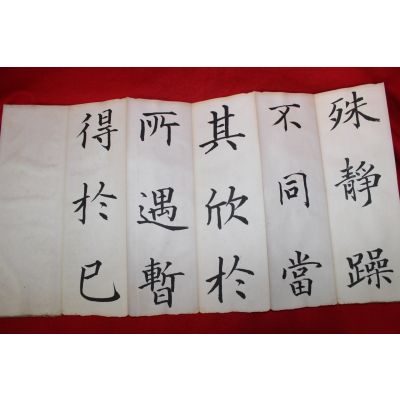 殊靜躁
不同當
其欣於
所遇暫
得於已